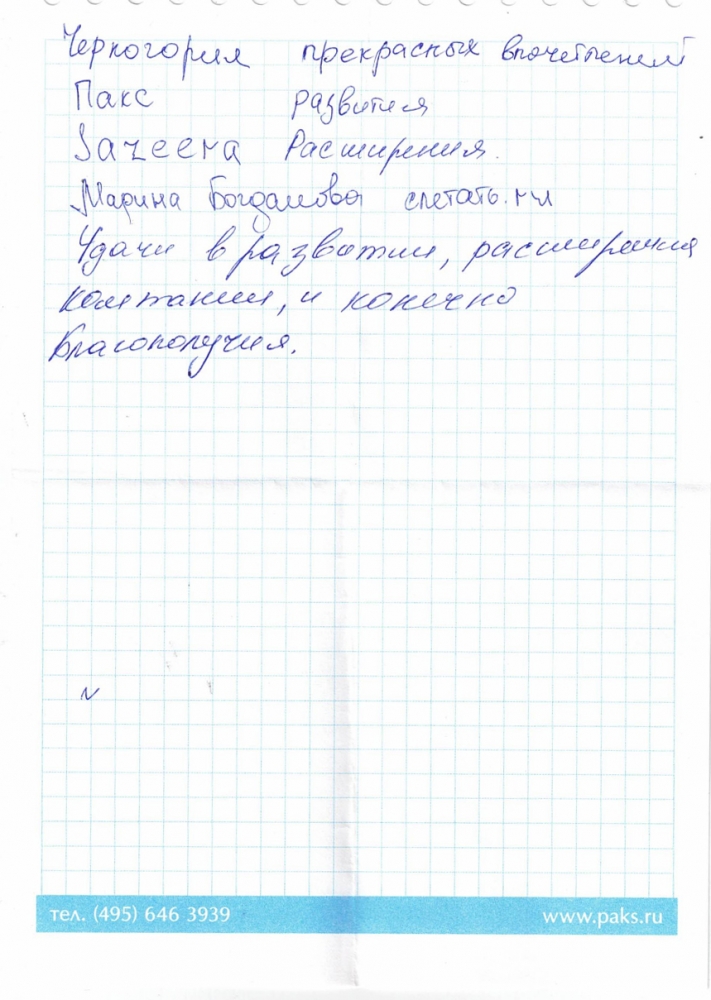 Черногория прекрасных впочетлений
Пакс развития
Sazeera Расширения.
Марина Богданова слетать.ru
Удачи в развитии, расширении
компании, и конечно
благополучия.
тел. (495) 646 3939 www.paks.ru